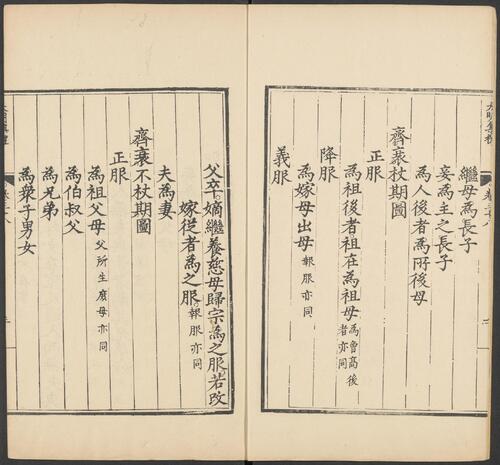 繼母為長子
妾為主之長子
為人後者為所後母
齊衰杖期圖
正服
為祖後者祖在為祖母為曾高後者亦同
降服
為嫁母出母報服亦同
義服
父卒嫡繼養慈母歸宗為之服若改
嫁從者為之服報服亦同
夫為妻
齊衰不杖期圖
正服
為祖父母父所生庶母亦同
為伯叔父
為兄弟
為衆子男女